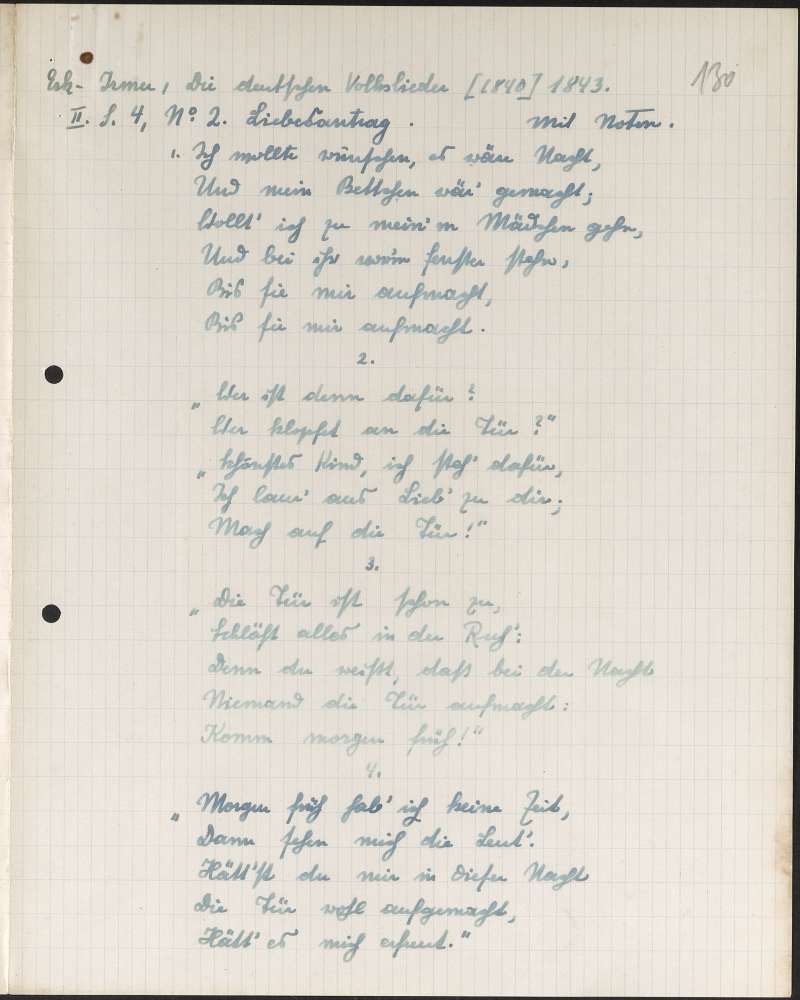 Erk-Irmer, Die deutschen Volkslieder [1840] 1843. 130
II. S. 4, No. 2. Liebesantrag. mit Noten.
1. Ich wollte wünschen, es wär Nacht,
Und mein Bettchen wär' gemacht;
Wollt' ich zu mein'm Mädchen gehn,
Und bei ihr vor'm Fenster stehn,
Bis sie mir aufmacht,
Bis sie mir aufmacht.
2.
„Wer ist denn dafür?
Wer klopfet an die Tür?"
„Schönstes Kind, ich steh' dafür,
Ich komm' aus Lieb' zu dir;
Mach auf die Tür!"
3.
„Die Tür ist schon zu,
Schläft alles in der Ruh':
Denn du weißt, daß bei der Nacht
Niemand die Tür aufmacht:
Komm morgen früh!"
4.
„Morgen früh hab' ich keine Zeit,
Dann sehen mich die Leut'.
Hätt'st du mir in dieser Nacht
Die Tür wohl aufgemacht,
Hätt' es mich erfreut."